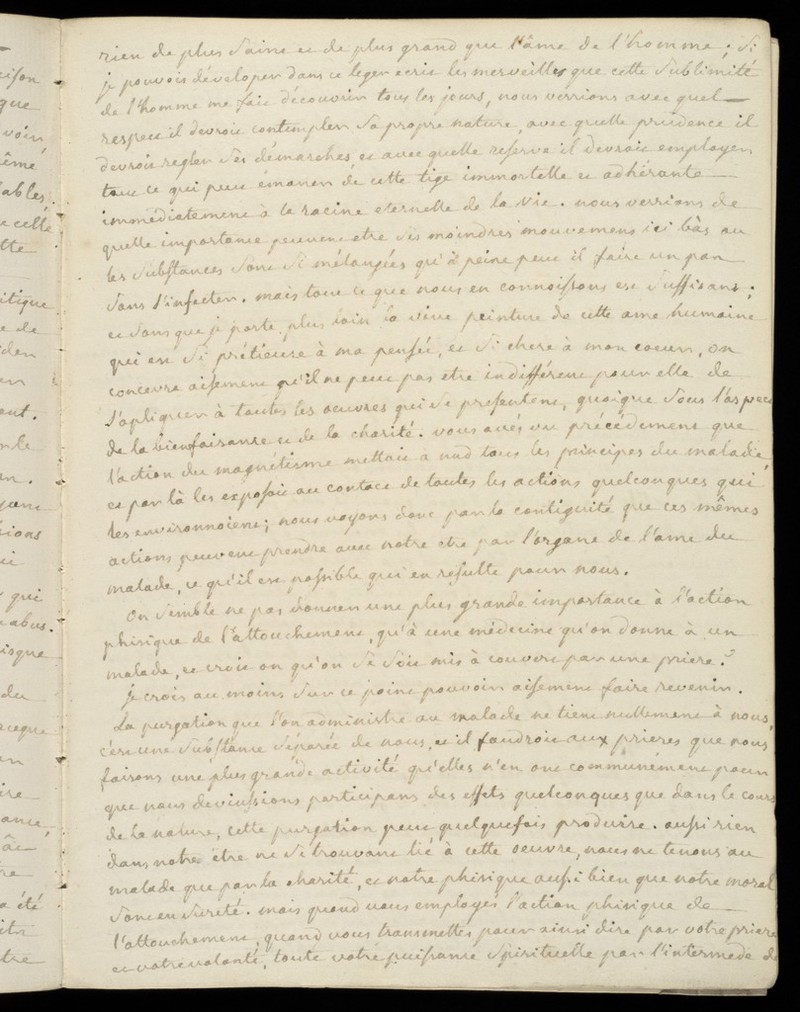 rien de plus saint et de plus grand que l'âme de l'homme ; si
je pouvois déveloper dans ce leger écrit les merveilles que cette sublimité
de l'homme me fait découvrir tous les jours, nous verrions avec quel
respect il devroit contempler sa propre nature, avec quelle prudence il
devroit regler ses démarches et avec quelle reserve il devroit employer
tout ce qui peut émaner de cette tige immortelle et adhérante
immédiatement à la racine eternelle de la vie. nous verrions de
quelle importance peuvent etre ses moindres mouvemens ici bàs au
les substances sont si mélangées qu'à peine peut il faire un pas
sans s'infecter. mais tout ce que nous en connoissons est suffisant ;
et sans que je porte plus loin la vive peinture de cette ame humaine
qui est si prétieuse à ma pensée, et si chere à mon coeur, on
concevra aisément qu'il ne peut pas etre indifférent pour elle de
s'apliquer à toutes les oeuvres qui se presentent, quoique sous l'aspect
de la bienfaisance et de la charité. vous avés vu précédement que
l'action du magnétisme mettait à nud tous les principes du malade,
et par là les exposoit au contact de toutes les actions quelconques qui
les environnoient ; nous voyons donc par la contiguité que ces mêmes
actions peuvent prendre avec notre etre par l'organe de l'ame du
malade, ce qu'il est possible qui en resulte pour nous.
On semble ne pas donner une plus grande importance à l'action
phisique de l'attouchement, qu'à une médecine qu'on donne à un
malade, et croit on qu'on se soit mis à couvert par une priere ?
je crois au moins sur ce point pouvoir aisément faire revenir.
La purgation que l'on administre au malade ne tient nullement à nous,
c'est une substance séparée de nous, et il faudroit aux prieres que nous
faisons une plus grande activité qu'elles n'en ont communement pour
que nous devinssions participans des effets quelconques que dans le cours
de la nature, cette purgation peut quelquefois produire. aussi rien
dans notre être ne se trouvant lié à cette oeuvre, nous ne tenons au
malade que par la charité, et notre phisique aussi bien que notre moral
sont en sureté. mais quand vous employés l'action phisique de
l'attouchement, quand vous transmettes pour ainsi dire par votre priere
et votre volonté, toute votre puissance spirituelle par l'intermede de